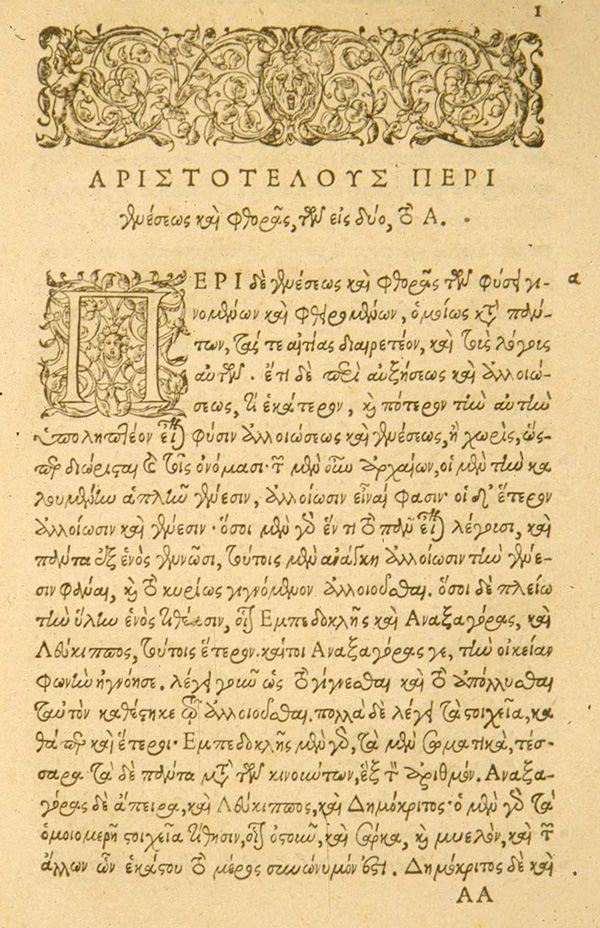 1
ΑΡΙΣΤΟΤΕΛΟΥΣ ΠΕΡΙ
γενέσεως καὶ φθορᾶς, τῶν εἰς δύο, τὸ Α.
ΠΕΡΙ δὲ γενέσεως καὶ φθορᾶς τῶν φύσει γι- α
νομένων καὶ φθειρομένων, ὁμοίως κατὰ πάν-
των, τάς τε αἰτίας διαιρετέον, καὶ τοὺς λόγους
αὐτῶν. ἔτι δὲ περὶ αὐξήσεως καὶ ἀλλοιώ-
σεως, τί ἑκάτερον, καὶ πότερον τὴν αὐτὴν
ὑποληπτέον εἶναι φύσιν ἀλλοιώσεως καὶ γενέσεως, ἢ χωρὶς, ὥσ-
περ διώρισται καὶ τοῖς ὀνόμασι· τῶν μὲν οὖν ἀρχαίων, οἱ μὲν τὴν κα
λουμένην ἁπλῆν γένεσιν, ἀλλοίωσιν εἶναί φασιν· οἱ δ' ἕτερον
ἀλλοίωσιν καὶ γένεσιν· ὅσοι μὲν γὰρ ἕν τι τὸ πᾶν εἶναι λέγουσι, καὶ
πάντα ἐξ ἑνὸς γεννῶσι, τούτοις μὲν ἀνάγκη ἀλλοίωσιν τὴν γένε-
σιν φάναι, καὶ τὸ κυρίως γιγνόμενον ἀλλοιοῦσθαι. ὅσοι δὲ πλείω
τὴν ὕλην ἑνὸς τιθέασιν, οἷον Ἐμπεδοκλῆς καὶ Ἀναξαγόρας, καὶ
Λεύκιππος, τούτοις ἕτερον. καίτοι Ἀναξαγόρας γε, τὴν οἰκείαν
φωνὴν ἠγνόησε. λέγει γοῦν ὡς τὸ γίγνεσθαι καὶ τὸ ἀπόλλυσθαι
ταὐτὸν καθέστηκε τῷ ἀλλοιοῦσθαι. πολλὰ δὲ λέγει τὰ στοιχεῖα, κα
θάπερ καὶ ἕτεροι· Ἐμπεδοκλῆς μὲν γὰρ, τὰ μὲν σωματικὰ, τέσ-
σαρα τὰ δὲ πάντα μετὰ τῶν κινούντων, ἓξ τὸν ἀριθμόν. Ἀναξα-
γόρας δὲ ἄπειρα, καὶ Λεύκιππος, καὶ Δημόκριτος· ὁ μὲν γὰρ τὰ
ὁμοιομερῆ στοιχεῖα τίθησιν, οἷον ὀστοῦν, καὶ σάρκα, καὶ μυελὸν, καὶ τῶν
ἄλλων ὧν ἑκάστου τὸ μέρος συνώνυμόν ἐστι. Δημόκριτος δὲ καὶ
ΑΑ